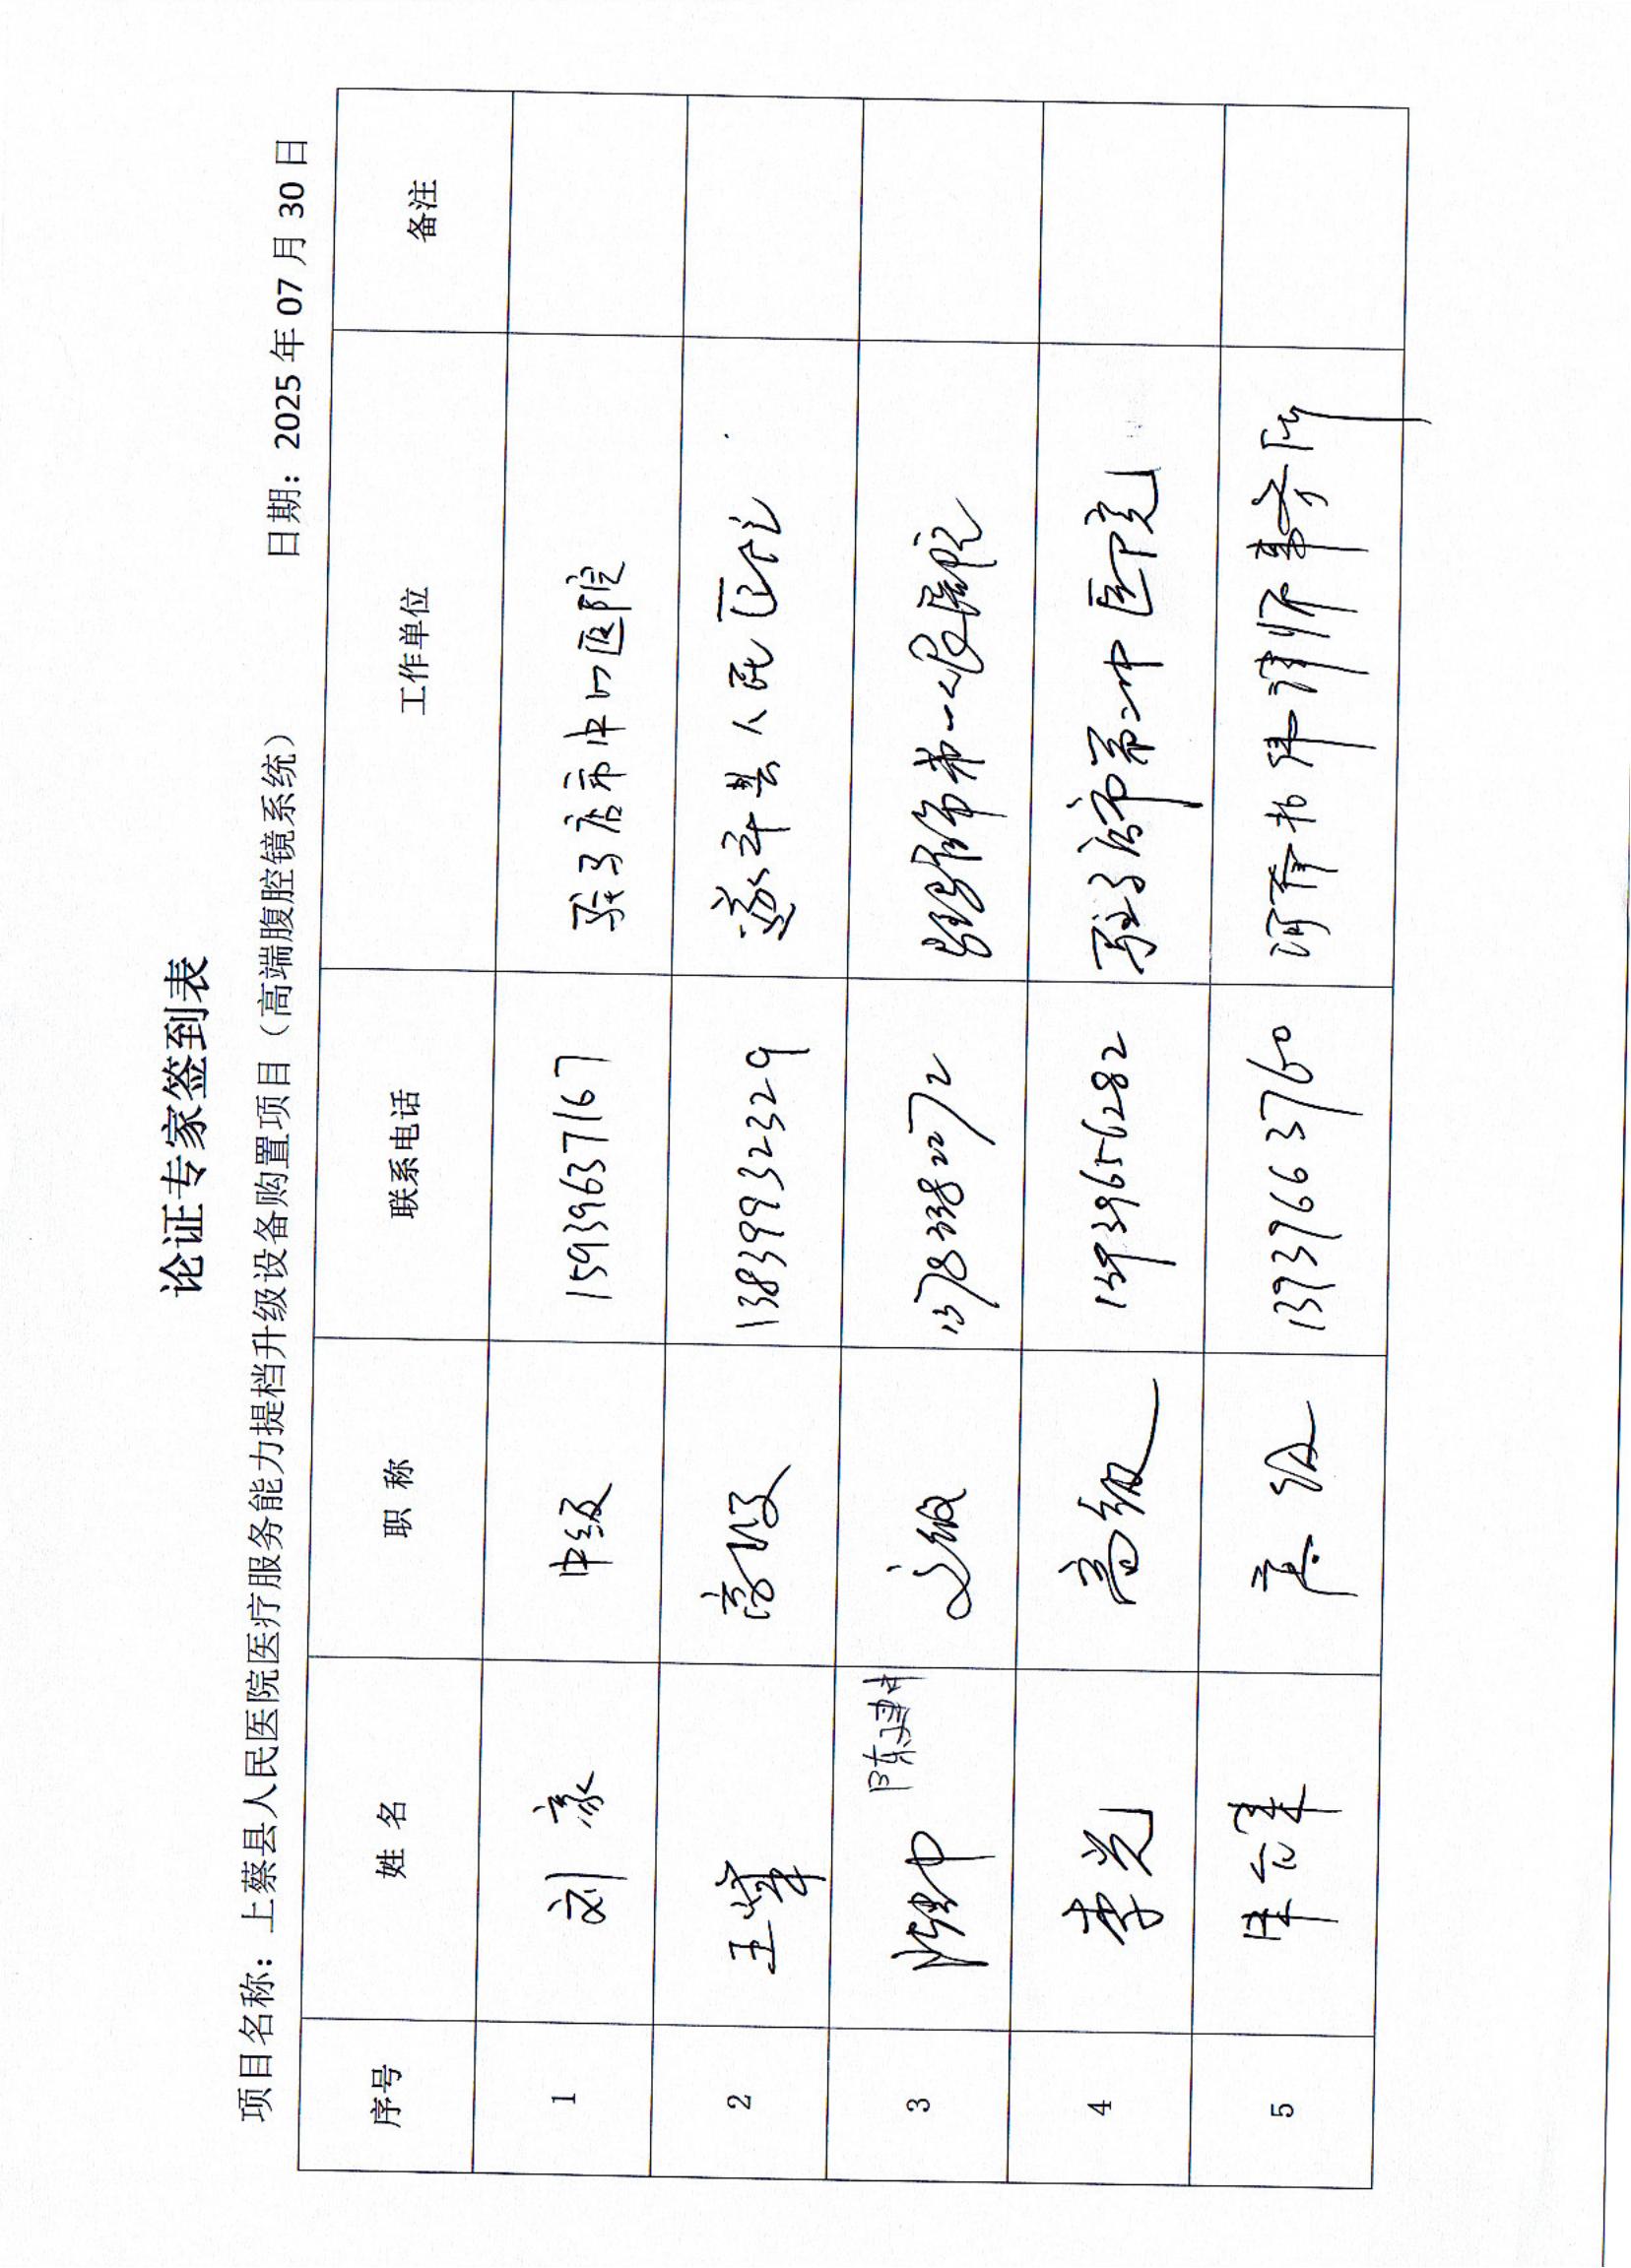 论证专家签到表
项目名称：上蔡县人民医院医疗服务能力提档升级设备购置项目（高端腹腔镜系统） 日期：2025 年 07 月 30 日
序号 姓 名 职 称 联系电话 工作单位 备注
1 刘豪 中级 15939637167 驻马店市中心医院
2 王峰 高级 13839932329 遂平县人民医院
3 陈建中 高级 驻马店市第一人民医院
4 李党 高级 13939656282 驻马店市第二中医院
5 高级 13739663760 律师事务所